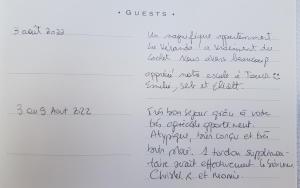 • GUESTS •
3 août 2022
Un magnifique appartement
La Véranda a vraiment du
cachet. Nous avons beaucoup
apprécié notre escale à Tours
Emilie, Seb et Eliott
3 au 9 Aout 2022
Très bon séjour grâce à votre
très agréable appartement.
Atypique, très conçu et très
bien placé. 1 torchon supplémen-
taire serait effectivement le bienvenu
Christel, R. et Mamie